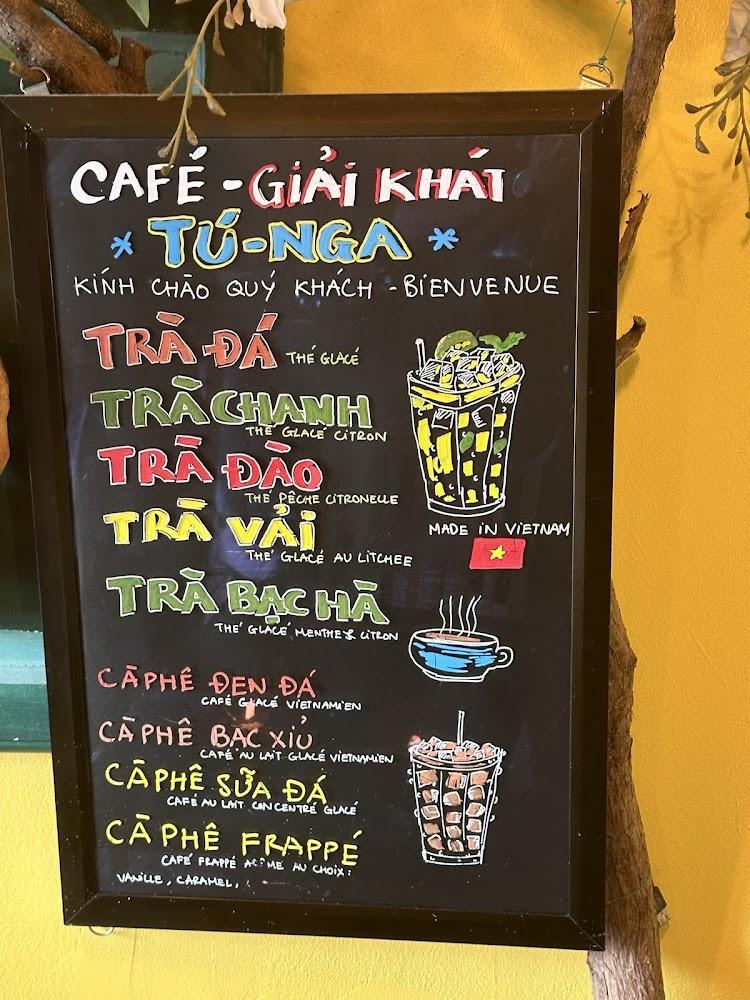 CAFÉ - GIẢI KHÁT
* TÚ-NGA *
KÍNH CHÀO QUÝ KHÁCH - BIENVENUE
TRÀ ĐÁ THÉ GLACÉ
TRÀ CHANH
THÉ GLACÉ CITRON
TRÀ ĐÀO
THÉ PÊCHE CITRONELLE
TRÀ VẢI
THÉ GLACÉ AU LITCHEE
TRÀ BẠC HÀ
THÉ GLACÉ MENTHE & CITRON
MADE IN VIETNAM
CÀ PHÊ ĐEN ĐÁ
CAFÉ GLACÉ VIETNAMIEN
CÀ PHÊ BẠC XỈU
CAFÉ AU LAIT GLACÉ VIETNAMIEN
CÀ PHÊ SỮA ĐÁ
CAFÉ AU LAIT CONCENTRÉ GLACÉ
CÀ PHÊ FRAPPÉ
CAFÉ FRAPPÉ AU CHOIX:
VANILLE, CARAMEL,